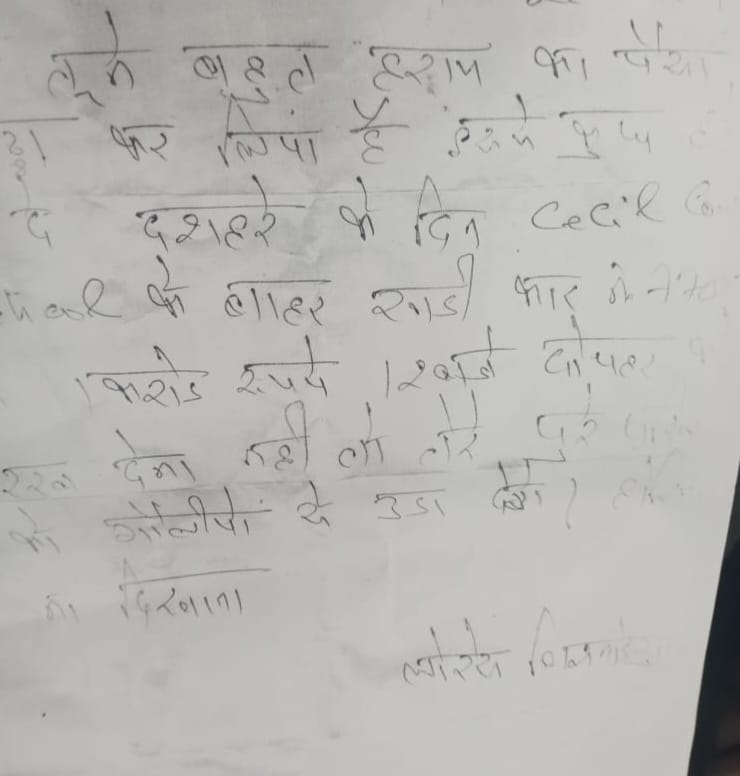 तूने बहुत हराम का पैसा
कर लिया है इसमे कुछ
दे दशहरे के दिन Cecil
के बाहर खडी कार मे
1 करोड रूपये 12 बजे दोपहर
रख देना नही तो तेरे पुरे
को गोलीयों से उडा देंगे।
ना दिखाना
लोरेंस